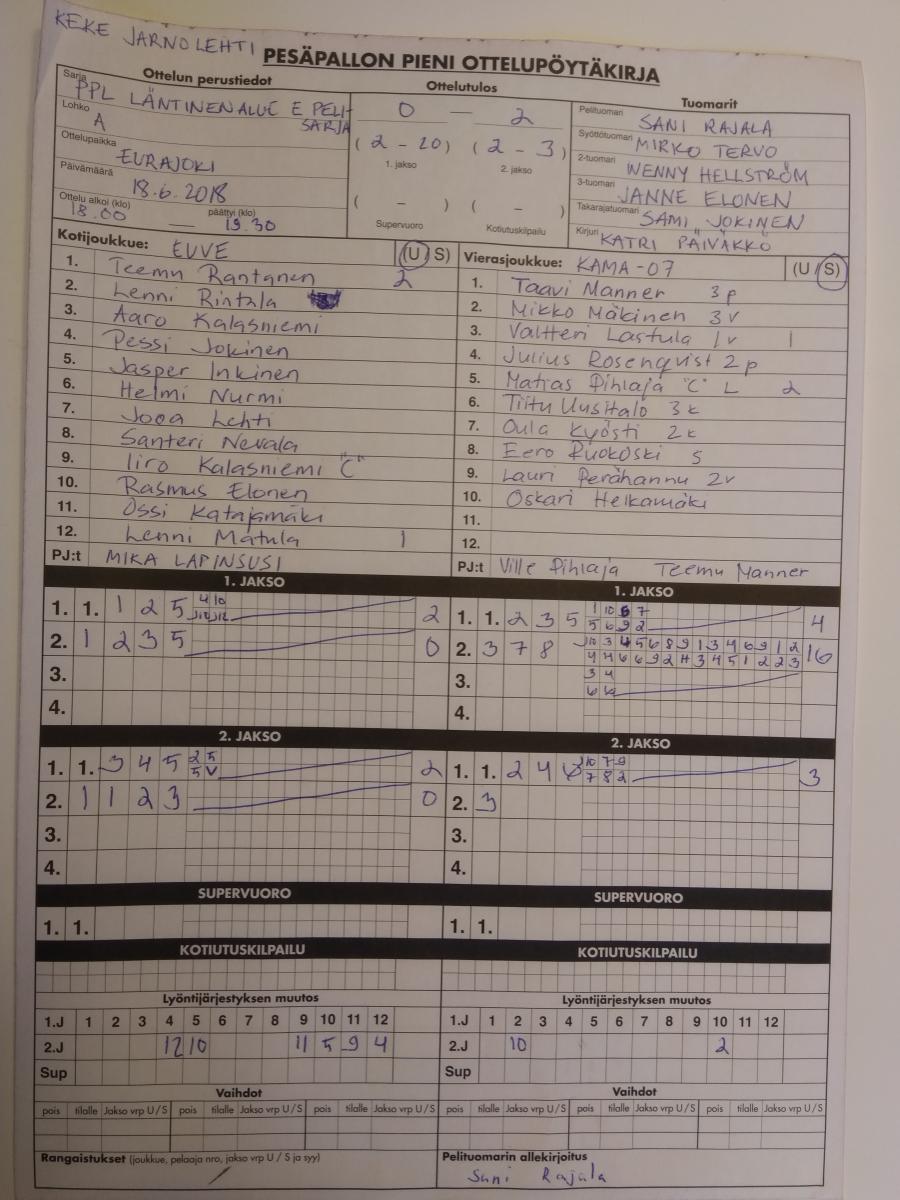 KEKE JARNOLEHTI
PESÄPALLON PIENI OTTELUPÖYTÄKIRJA
Ottelun perustiedot
Sarja PPL LÄNTINEN ALUE E PELI-
SARJA
Lohko A
Ottelupaikka EURAJOKI
Päivämäärä 18.6.2018
Ottelu alkoi (klo) 18.00 — päättyi (klo) 19.30
Ottelutulos
0 — 2
(2 - 20) (2 - 3)
1. jakso 2. jakso
( - ) ( - )
Supervuoro Kotiutuskilpailu
Tuomarit
Pelituomari SANI RAJALA
Syöttötuomari MIRKO TERVO
2-tuomari WENNY HELLSTRÖM
3-tuomari JANNE ELONEN
Takarajatuomari SAMI JOKINEN
Kirjuri KATRI PÄIVÄKKÖ
Kotijoukkue: EUVE (U/S)
1. Teemu Rantanen 2
2. Lenni Rintala
3. Aaro Kalasniemi
4. Pessi Jokinen
5. Jasper Inkinen
6. Helmi Nurmi
7. Jooa Lehti
8. Santeri Nevala
9. Iiro Kalasniemi "C"
10. Rasmus Elonen
11. Ossi Katajamäki
12. Lenni Matula 1
PJ:t MIKA LAPINSUSI
Vierasjoukkue: KAMA-07 (U/S)
1. Taavi Manner 3p
2. Mikko Mäkinen 3v
3. Valtteri Lastula 1v 1
4. Julius Rosenqvist 2p
5. Matias Pihlaja "C" L 2
6. Tiitu Uusitalo 3k
7. Oula Kyösti 2k
8. Eero Ruokoski S
9. Lauri Perähannu 2v
10. Oskari Heikamäki
11.
12.
PJ:t Ville Pihlaja Teemu Manner
1. JAKSO
1. 1. 1 2 5 2
2. 1 2 3 5 0
3.
4.
1. JAKSO
1. 1. 2 3 5 1 10 6 7 4
5 6 9 2
2. 3 7 8 10 3 4 5 6 8 9 1 3 4 6 9 1 2 16
4 4 6 6 9 2 11 3 4 5 1 2 2 3
3. 3 4
6 6
4.
2. JAKSO
1. 1. 3 4 5 2 5 2
5 V
2. 1 1 2 3 0
3.
4.
2. JAKSO
1. 1. 2 4 10 7 9 3
7 8 2
2. 3
3.
4.
SUPERVUORO
1. 1.
SUPERVUORO
1. 1.
KOTIUTUSKILPAILU
KOTIUTUSKILPAILU
Lyöntijärjestyksen muutos
1.J 1 2 3 4 5 6 7 8 9 10 11 12
2.J 12 10 11 5 9 4
Sup
Lyöntijärjestyksen muutos
1.J 1 2 3 4 5 6 7 8 9 10 11 12
2.J 10 2
Sup
Vaihdot
pois tilalle Jakso vrp U/S pois tilalle Jakso vrp U/S pois tilalle Jakso vrp U/S
Vaihdot
pois tilalle Jakso vrp U/S pois tilalle Jakso vrp U/S pois tilalle Jakso vrp U/S
Rangaistukset (joukkue, pelaaja nro, jakso vrp U / S ja syy)
Pelituomarin allekirjoitus
Sani Rajala